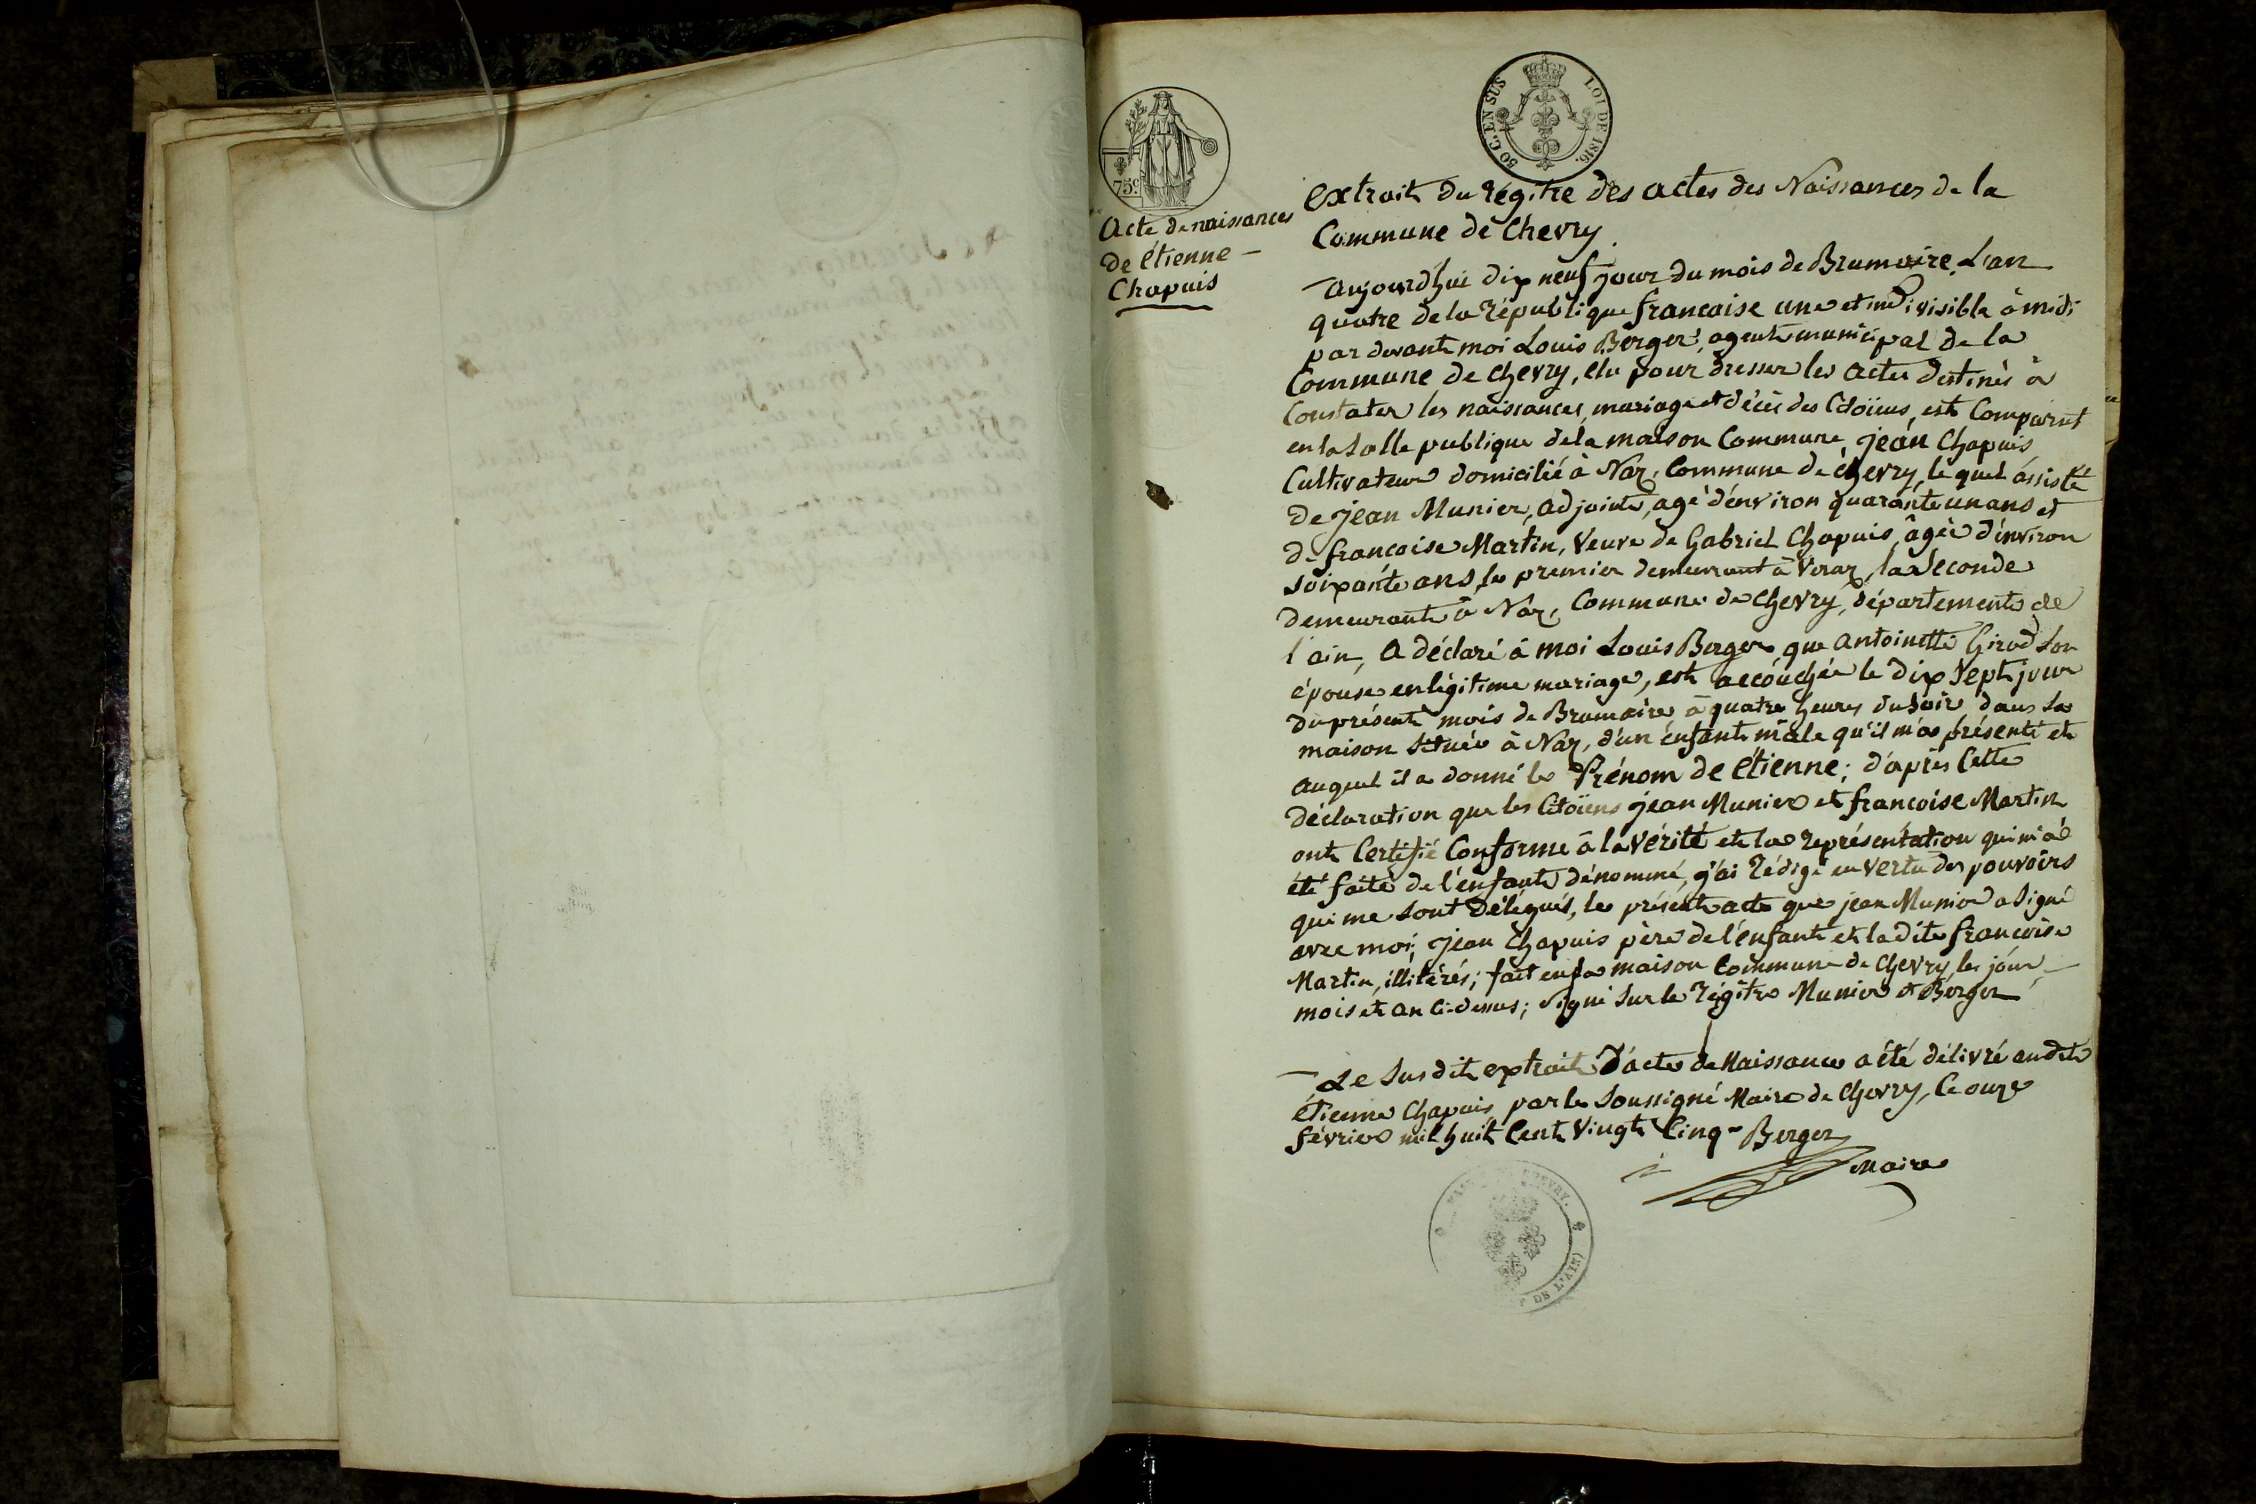 75 c.
50 C. EN SUS LOI DE 1816.
Acte de naissances
de étienne –
Chapuis
extrait du régitre des actes des Naissances de la
Commune de Chevry
aujourdhui dix neuf jour du mois de Brumaire, L'an
quatre de la république francaise une et indivisible à midi
par devant moi Louis Berger, agent municipal de la
Commune de chevry, élu pour dresser les actes destinés à
Constater les naissances, mariage et décès des Citoïens, est Comparut
en la Salle publique de la maison Commune, jean Chapuis
Cultivateur domicilié à Naz, Commune de chevry, le quel assisté
de jean Munier, adjoint, agé d'environ quarante un ans et
de francoise Martin, Veuve de Gabriel Chapuis, âgée d'environ
soixante ans, le premier demeurant à Veraz, la Seconde
demeurante à Naz, Commune de Chevry, département de
l'ain, a déclaré à moi Louis Berger que antoinette Girod Son
épouse en légitime mariage, est accouchée le dix Sept jour
du présent mois de Brumaire à quatre heures du Soir dans Sa
maison Située à Naz, d'un enfant mâle qu'il m'a présenté et
auquel il a donné le Prénom de étienne; d'après Cette
déclaration que les Citoïens jean Munier et francoise Martin
ont Certifié Conforme à la vérité et la représentation qui m'a
été faite de l'enfant dénommé, j'ai rédigé en vertu des pouvoirs
qui me sont délégués, le présent acte que jean Munier a Signé
avec moi; jean Chapuis père de l'enfant et la dite francoise
Martin, illitérés; fait en la maison Commune de Chevry, les jour
mois et an Ci-dessus; Signé Sur le régitre Munier et Berger
Le Sus dit extrait d'acte de Naissance a été délivré au dit
étienne Chapuis par le Soussigné Maire de Chevry, le onze
février mil huit Cent Vingt Cinq – Berger
Maire
CHEVRY.
DE L'AIN)